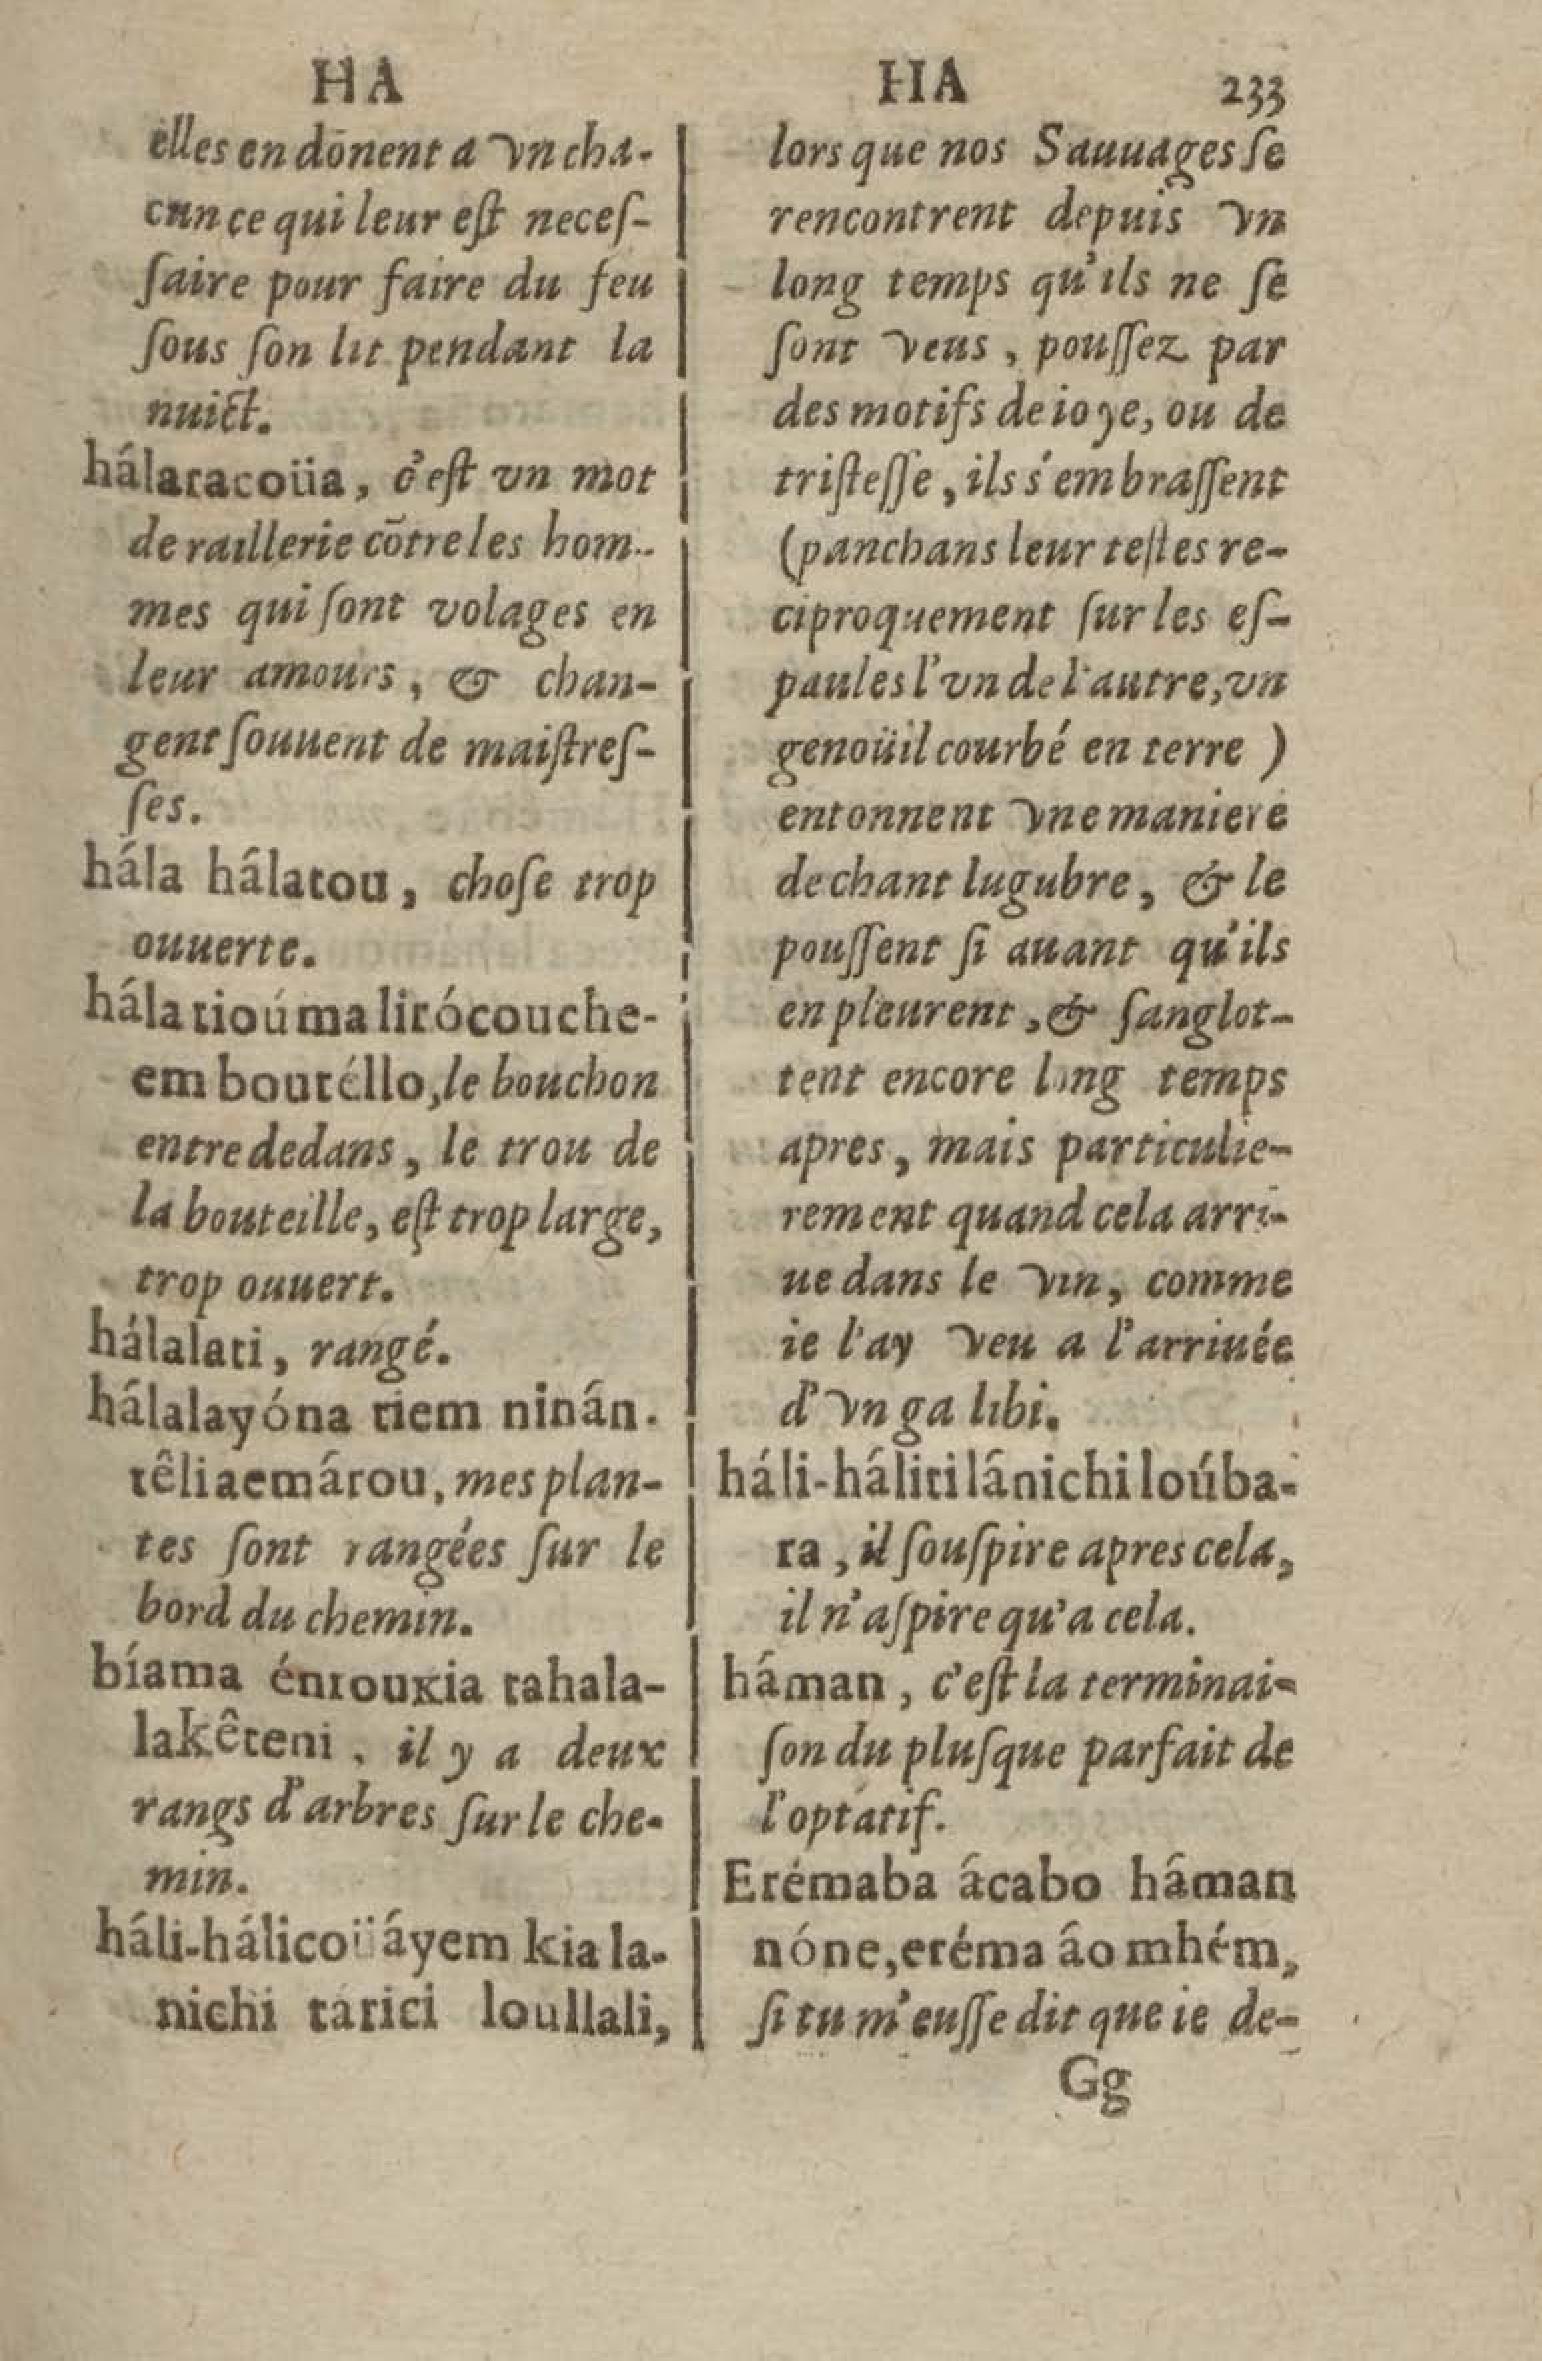 HA
elles en dōnent a vn cha-
cun ce qui leur eſt neceſ-
ſaire pour faire du feu
ſous ſon lit pendant la
nuict.
hálaracoüa, c'eſt vn mot
de raillerie cōtre les hom-
mes qui ſont volages en
leur amours, & chan-
gent ſouuent de maiſtreſ-
ſes.
hála hálatou, choſe trop
ouuerte.
hála tioúma lirócouche-
em boutéllo, le bouchon
entre dedans, le trou de
la bouteille, eſt trop large,
trop ouuert.
hálalati, rangé.
hálalayóna tiem ninán.
têliaemárou, mes plan-
tes ſont rangées ſur le
bord du chemin.
bíama énrouкia tahala-
lakêteni, il y a deux
rangs d'arbres ſur le che-
min.
háli-hálicoüáyem kia la-
nichi tárici loullali,
HA 233
lors que nos Sauuages ſe
rencontrent depuis vn
long temps qu'ils ne ſe
ſont veus, pouſſez par
des motifs de ioye, ou de
triſteſſe, ils s'embraſſent
(panchans leur teſtes re-
ciproquement ſur les eſ-
paules l'vn de l'autre, vn
genoüil courbé en terre)
entonnent vne maniere
de chant lugubre, & le
pouſſent ſi auant qu'ils
en pleurent, & ſanglot-
tent encore long temps
apres, mais particulie-
rement quand cela arri-
ue dans le vin, comme
ie l'ay veu a l'arriuée
d'vn galibi.
háli-háliti lánichi loúba-
ra, il ſouſpire apres cela,
il n'aſpire qu'a cela.
háman, c'eſt la terminai-
ſon du pluſque parfait de
l'optatif.
Erémaba ácabo háman
nóne, eréma áo mhém,
ſi tu m'euſſe dit que ie de-
Gg